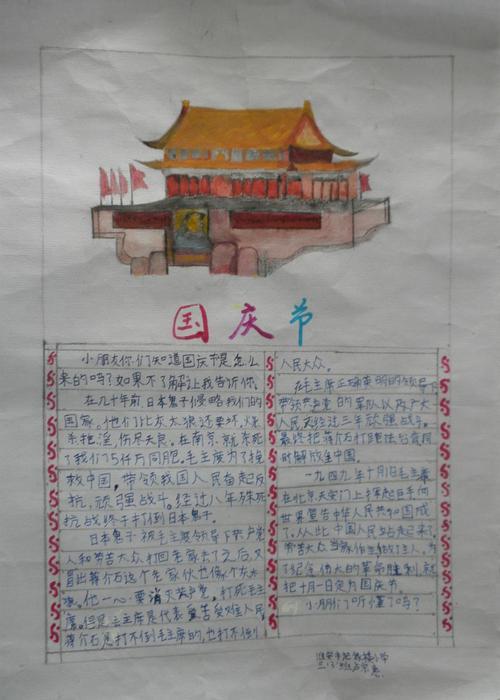 国庆节
小朋友你们知道国庆节是怎么
来的吗?如果不了解让我告诉你。
在几十年前,日本鬼子侵略我们的
国家。他们比灰太狼还要坏,烧
手抢淫,伤尽天良。在南京就杀死
了我们5仟万同胞。毛主席为了挽
救中国,带领我国人民奋起反
抗,顽强战斗。经过八年殊死
抗战终于打倒日本鬼子。
日本鬼子被毛主席领导下共产党
人和劳苦大众打回老家去了之后,又
冒出蒋介石这个老家伙也像个灰太
狼。他一心要消灭共产党,打死毛主
席。但是毛主席是代表受苦受难人民
蒋介石是打不倒毛主席的,也打不倒
人民大众。
在毛主席正确英明的领导下
带领共产党的军队以及广大
人民又经过三年顽强战斗。
最终把蒋介石打跑法台湾同
时解放全中国。
一九四九年十月1日毛主席
在北京天安门上挥起巨手向
世界宣告中华人民共和国成
了,从此中国人民站起来了。
劳苦大众当家作主做主人,为
了纪念伟大的革命胜利,就
把十月一日定为国庆节。
小朋友们听懂了吗?
淮安市
小学
三(3)班